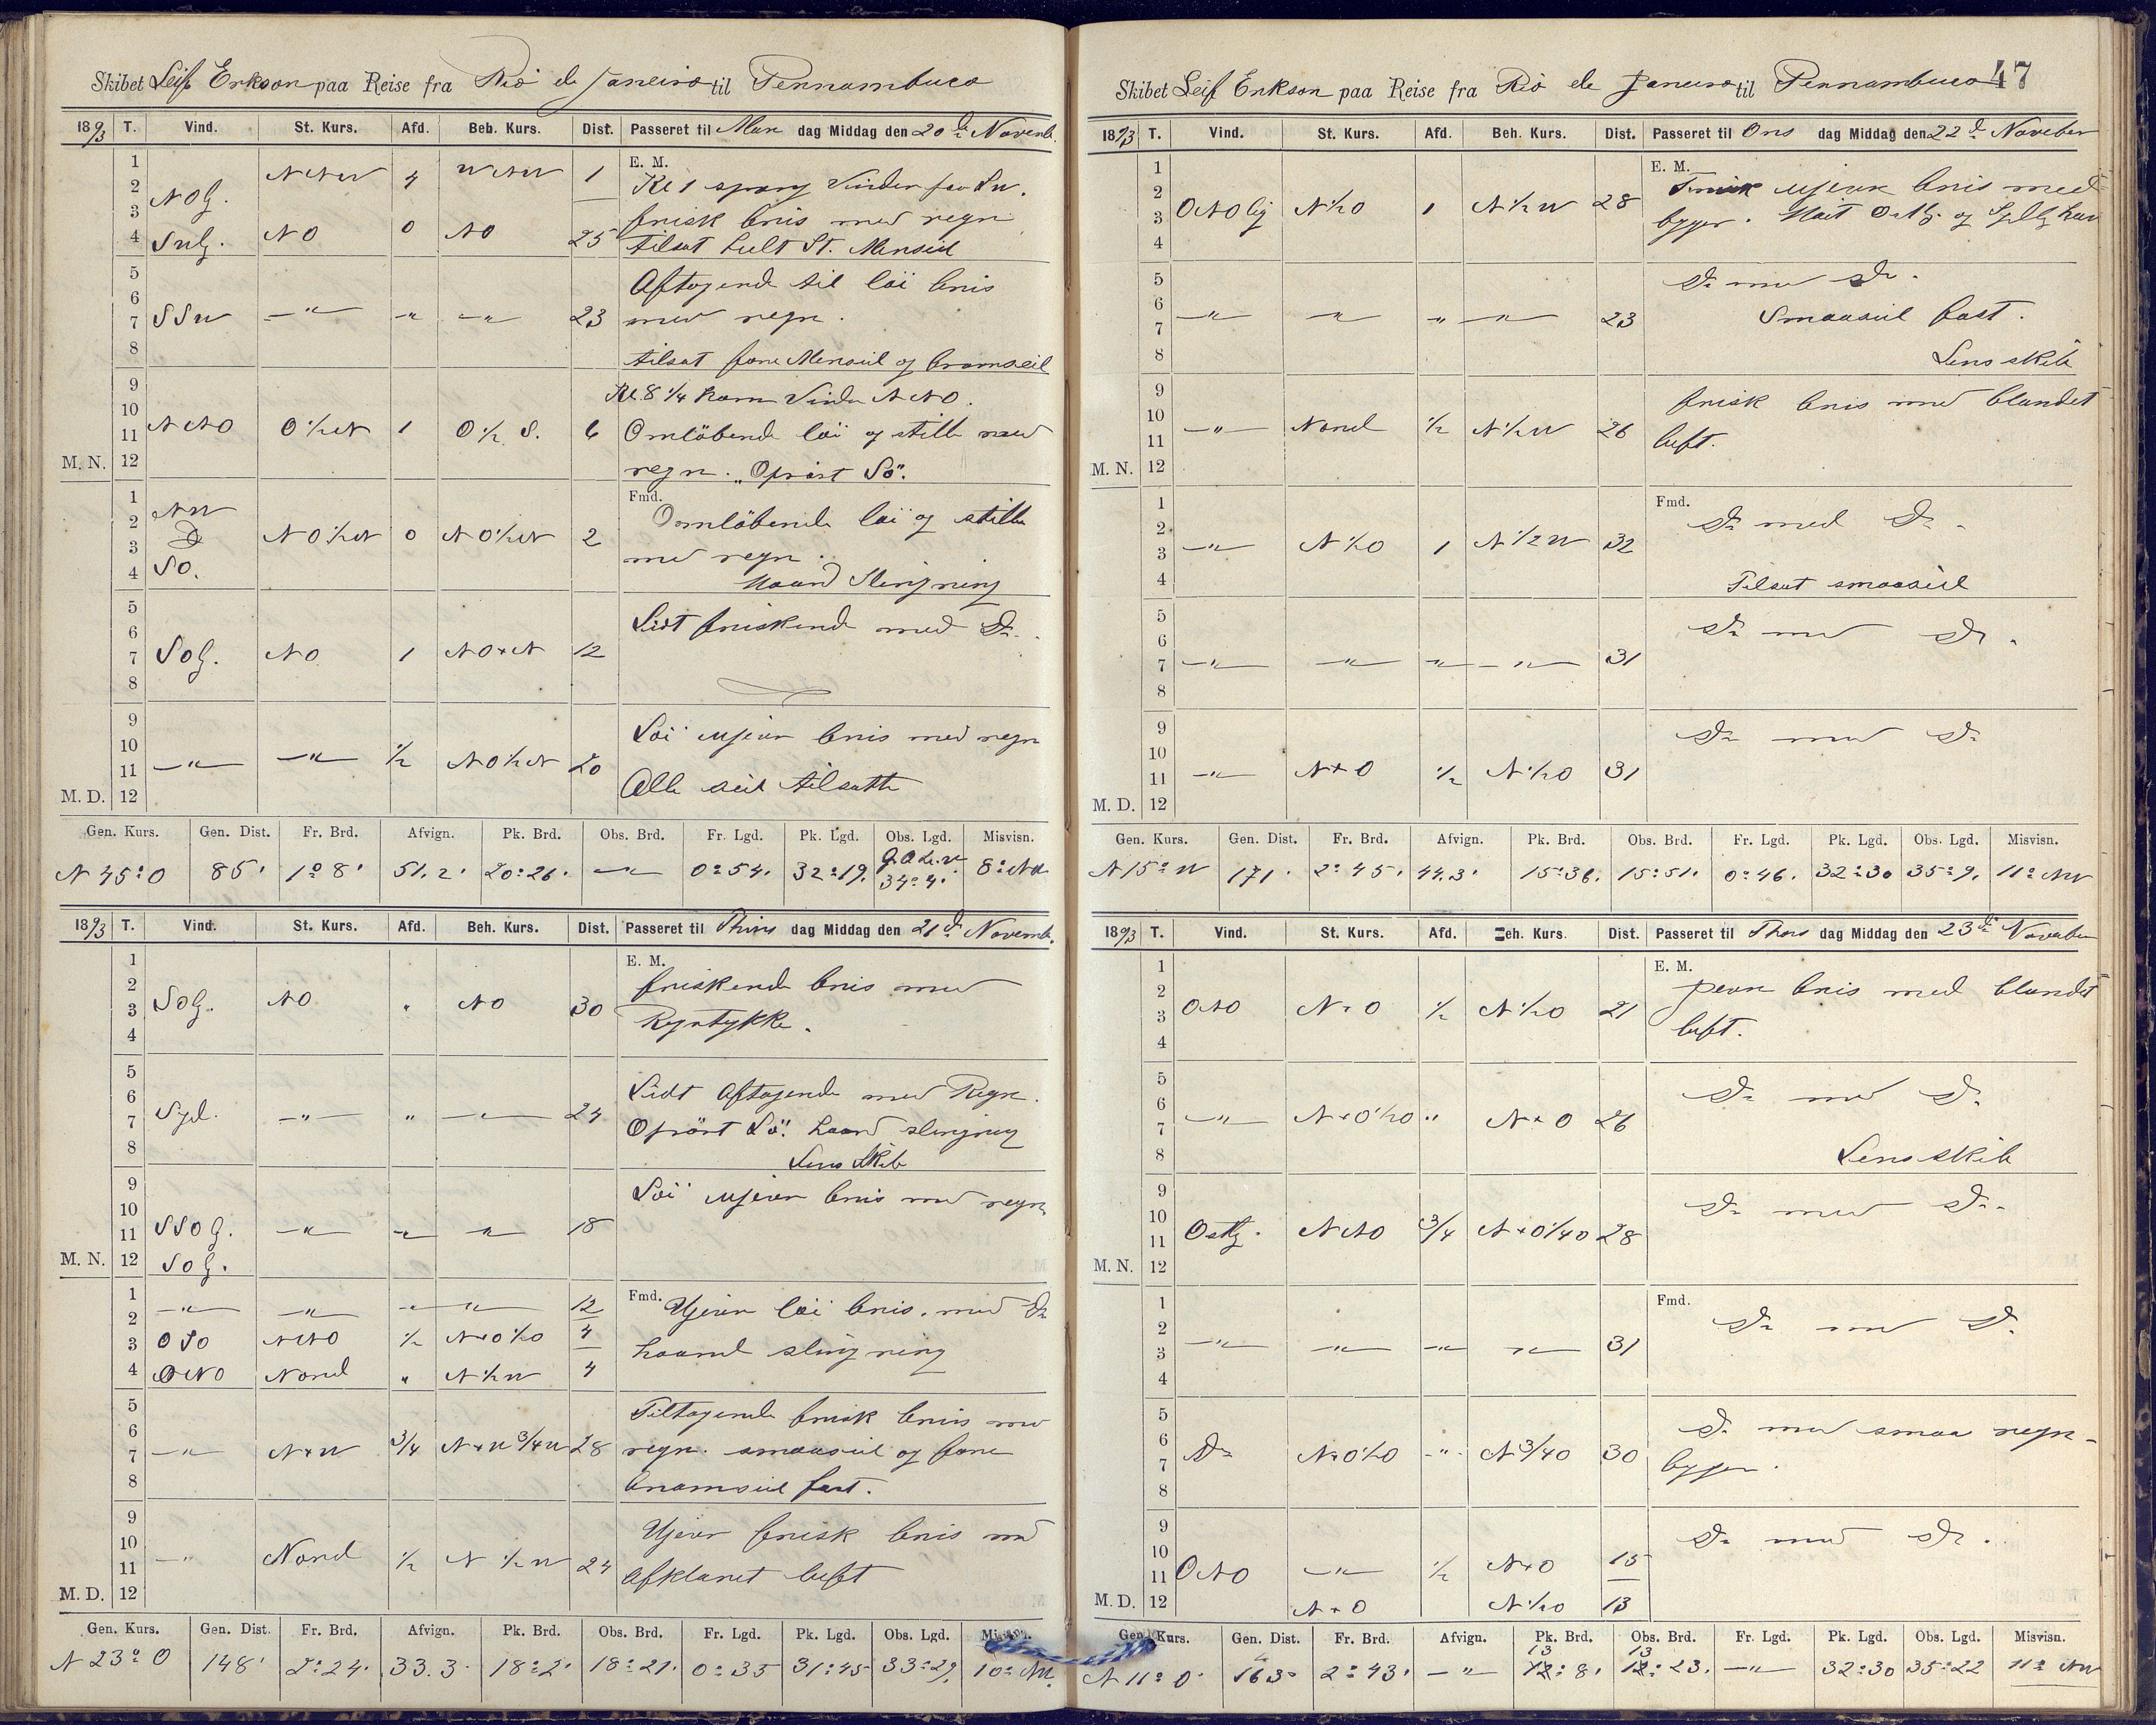 Skibet Leif Erikson paa Reise fra Rio de Janeiro til Pernambuco
1893 T. Vind. St. Kurs. Afd. Beh. Kurs. Dist. Passeret til Man dag Middag den 20de Novemb.
E. M.
1 NNW 4 WNW 1 Kl 1 sprang Vinden paa SW.
2 NOl.
3 frisk bris med regn
4 SWl. NO 0 NO 25 tilsat helt St. Mersseil
5 Aftagende til löi bris
6
7 SSW —"— " —"— 23 med regn.
8 tilsat fore Merseil og bramseil
9 Kl. 8 1/4 kom Vinden NNO.
10
11 NNO O 1/2 N 1 O 1/2 S. 6 Omlöbende löi og stille med
M. N. 12 regn. Oprört Sö.
Fmd.
1 NW Omlöbende löi og stille
2
3 Do N O 1/2 N 0 N O 1/2 N 2 med regn.
4 SO. Haard Slingring
5 Lidt friskende med Do.
6
7 SOl. NO 1 NO x N 12
8
9 Löi ujevn bris med regn
10
11 —"— —"— 1/2 N O 1/2 N 20
M. D. 12 Alle seil tilsatte
Gen. Kurs. Gen. Dist. Fr. Brd. Afvign. Pk. Brd. Obs. Brd. Fr. Lgd. Pk. Lgd. Obs. Lgd. Misvisn.
N 45° O 85' 1° 8' 51.2' 20° 26' —"— 0° 54' 32° 19' 34° 4' 8° NW
1893 T. Vind. St. Kurs. Afd. Beh. Kurs. Dist. Passeret til Thirs dag Middag den 21de Novemb.
E. M.
1 friskende bris med
2
3 SOl. NO " NO 30 Regntykke.
4
5 Lidt Aftagende med Regn.
6
7 Syd. —"— " —"— 24 Oprört Sö. haard slingring
8 Lens Skib
9 Löi ujevn bris med regn
10
11 SSOl. —"— —"— —"— 18
M. N. 12 SOl.
1 —"— —"— —"— —"— 12 Fmd. Ujevn löi bris. med Do
2
3 OSO NNO 1/2 N x O 1/2 O 4 haard slingring
4 ONO Nord " N 1/2 W 4
5 Tiltagende frisk bris med
6
7 —"— N x W 3/4 N x W 3/4 W 28 regn. smaaseil og fore
8 bramseil fast.
9 Ujevn frisk bris med
10
11 —"— Nord 1/2 N 1/2 W 24 afklaret luft
M. D. 12
Gen. Kurs. Gen. Dist. Fr. Brd. Afvign. Pk. Brd. Obs. Brd. Fr. Lgd. Pk. Lgd. Obs. Lgd. Misvisn.
N 23° O 148' 2° 24' 33.3' 18° 2' 18° 21' 0° 35 31° 45 33° 29' 10° NW.
47
Skibet Leif Erikson paa Reise fra Rio de Janeiro til Pernambuco
1893 T. Vind. St. Kurs. Afd. Beh. Kurs. Dist. Passeret til Ons dag Middag den 22de November
E. M.
1 Frisk ujevn bris med
2
3 ONOlig N 1/2 O 1 N 1/2 W 28 byger. Höit Ostl. og Sydl. hav
4
5 Do med Do.
6
7 —"— —"— " —"— 23 Smaaseil fast.
8 Lens skib
9 frisk bris med blandet
10
11 —"— Nord 1/2 N 1/2 W 26 luft.
M. N. 12
Fmd.
1 Do med Do.
2
3 —"— N 1/2 O 1 N 1/2 W 32
4 Tilsat smaaseil
5 Do med Do.
6
7 —"— —"— —"— —"— 31
8
9 Do med Do
10
11 —"— N x O 1/2 N 1/2 O 31
M. D. 12
Gen. Kurs. Gen. Dist. Fr. Brd. Afvign. Pk. Brd. Obs. Brd. Fr. Lgd. Pk. Lgd. Obs. Lgd. Misvisn.
N 15° W 171' 2° 45' 44.3' 15° 36' 15° 51' 0° 46' 32° 30 35° 9' 11° NW
1893 T. Vind. St. Kurs. Afd. Beh. Kurs. Dist. Passeret til Thors dag Middag den 23de November
E. M.
1 jevn bris med blandet
2
3 ONO N x O 1/2 N 1/2 O 21 luft.
4
5 Do med Do
6
7 —"— N x O 1/2 O " N x O 26
8 Lens skib
9 Do med Do.
10
11 Ostlg. NNO 3/4 N x O 1/4 O 28
M. N. 12
Fmd.
1 Do med Do.
2
3 —"— —"— —"— —"— 31
4
5 Do med smaa regn-
6
7 Do N x O 1/2 O —"— N 3/4 O 30 byger.
8
9 Do med Do.
10
11 ONO —"— 1/2 N x O 15
M. D. 12 N x O N 1/2 O 13
Gen. Kurs. Gen. Dist. Fr. Brd. Afvign. Pk. Brd. Obs. Brd. Fr. Lgd. Pk. Lgd. Obs. Lgd. Misvisn.
N 11° O 163' 2° 43' —"— 13° 8' 13° 23' —"— 32° 30 35° 22 11° NW